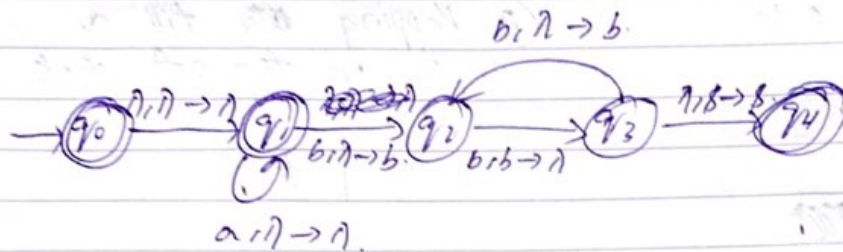 b, λ → b
λ, λ → λ
λ, $ → $
q0 q1 q2 q3 q4
b, λ → b
b, b → λ
a, λ → λ